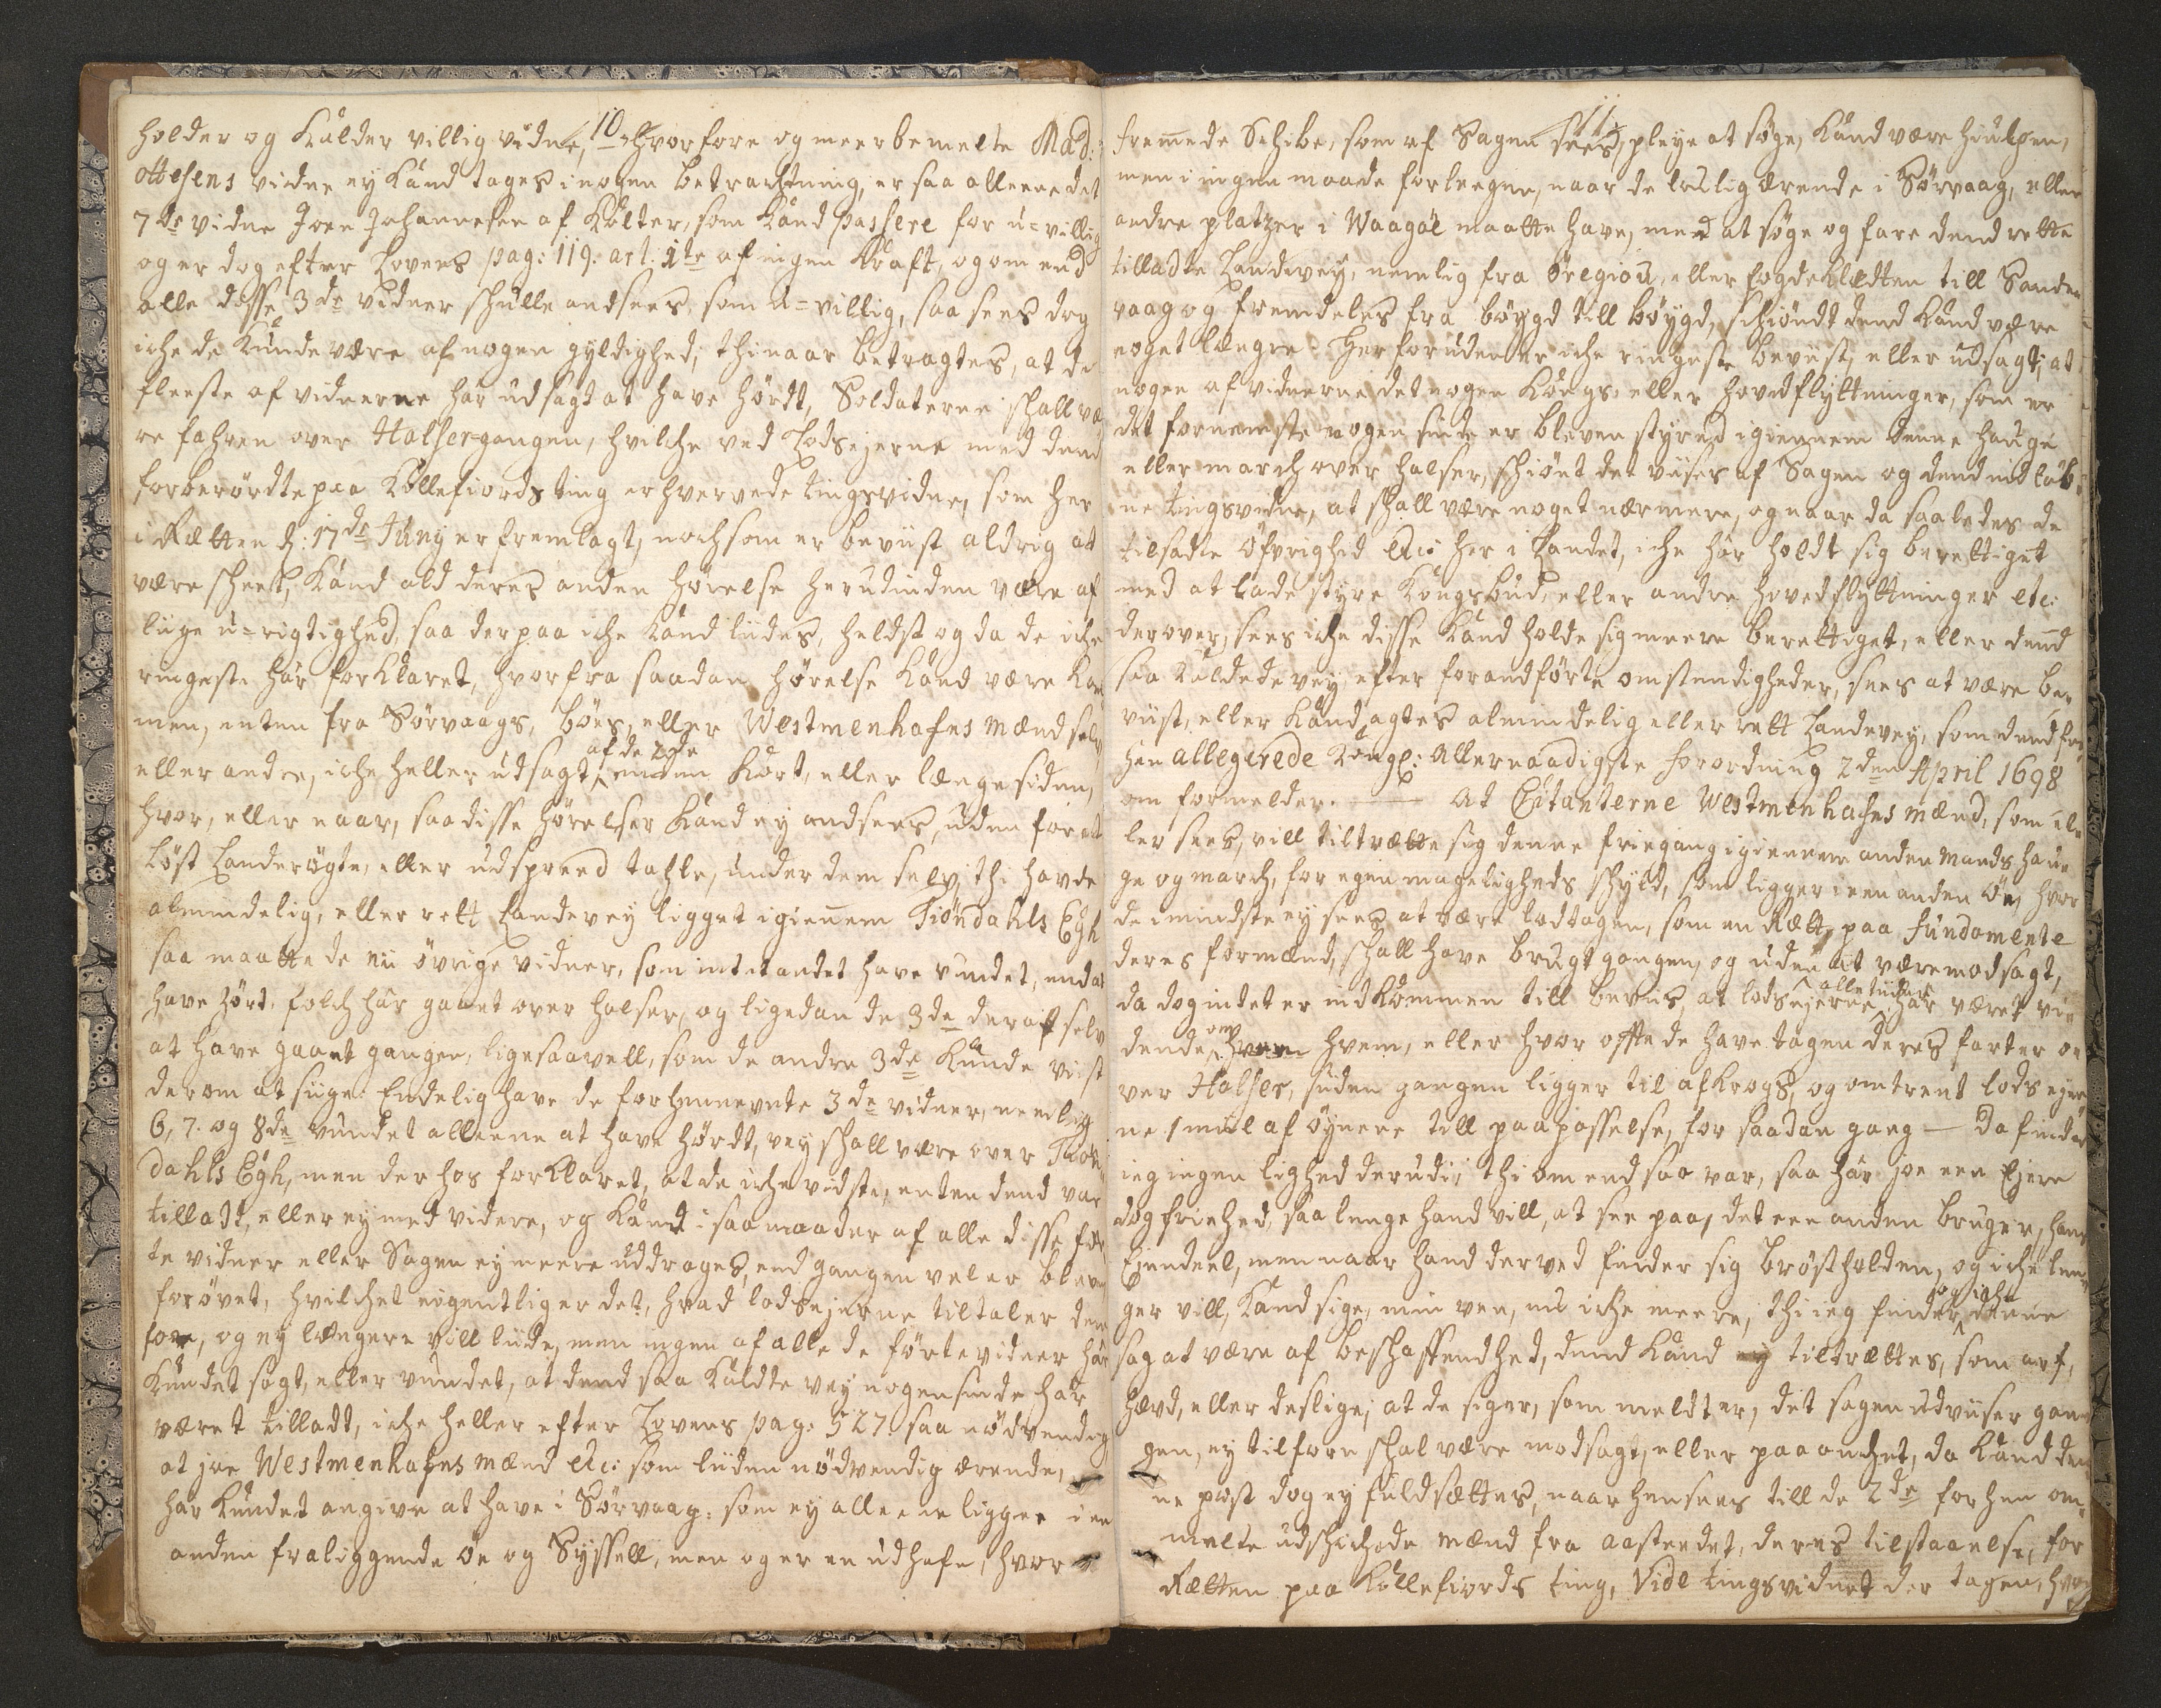 10
holder og Kalder villig vidne, hvorfore og meerbemelte Mad:
Ottesens vidne ey Kand tages i nogen betragtning, er saa alleene det
7de vidne Joen Johannesen af Kolter, som Kand passere for u=villig
og er dog efter Lovens pag: 119. art. 1te af ingen Kraft, og om end
alle disse 3de vidner skulle andsees som u=villig, saa sees dog
iche de Kunde være af nogen gyldighed; thi naar betragtes, at de
fleeste af vidnerne har udsagt at have hørdt, Soldaterne skall væ
re fahren over Halser=gangen, hvilche ved Lodsejerne med dend
forberørdte paa Kollefiords ting erhvervede tingsvidne, som her
i Rætten d: 17de Juny er fremlagt, nochsom er beviist aldrig at
være skeet, Kand ald deres anden hørelse herudinden være af
liige u=rigtighed, saa derpaa iche Kand liides, heldst og da de iche
ringeste har forklaret, hvorfra saadan hørelse Kand være kom
men, enten fra Sørvaags, Böes, eller Westmenhafns Mænd selv,
eller andre, iche heller udsagt, af de 2de enten Kort, eller længe siden,
hvor, eller naar, saa disse hørelser Kand ey andsees, uden for et
løst Landerögte, eller udspreed tahle, under dem selv, thi havde
almindelig, eller rett Landevey ligget igiennem Tiöndahls Egh
saa maatte de nii övrige vidner, som intet andet have vundet, end at
have hört, folch har gaaet over halser, og ligedan de 3de deraf selv
at have gaaet gangen, ligesaavell, som de andre 3de Kunde viist
derom at siige. Endelig have de forhennevnte 3de vidner, nemlig
6, 7. og 8de vundet alleene at have hørdt, vey skall være over Tiön
dahls Egh, men der hos forklaret, at de iche vidste, enten dend var
tilladt, eller ey med videre, og Kand i saa maader af alle disse för
te vidner eller Sagen ey meere uddrages, end gangen vel er bleven
forövet, hvilchet eigentlig er det, hvad lodsejerne tiltaler dem
fore, og ey længere vill liide, men ingen af alle de førte vidner har
Kundet sagt, eller vundet, at dend saa Kaldte vey nogensinde har
været tilladt, iche heller efter Lovens pag: 527. saa nödvendig,
at joe Westmenhafns Mænd etc: som liiden nödvendig ærende,
har Kundet angive at have i Sørvaag: som ey alleene ligger i en
anden fraliggende Öe og Syssell, men og er en udhafn, hvor
11
fremmede Schibe, som af Sagen sees, pleye at søge, Kand være hiulpen,
men i ingen maade forleegne, naar de lovlig ærende i Sørvaag, eller
andre platzer i Waagöe maatte have, med at søge og fare dend rette
tilladte Landevey, nemlig fra Öregiou, eller fogdeklædten till Sander
vaag og fremdeles fra böygd till böygd, schiöndt dend Kand være
noget længre. Herforuden er iche ringeste beviist, eller udsagt, at
nogen af vidnerne det nogen Kongs- eller hovedflyttninger, som er
det fornemste nogen sinde er bleven styred igiennem denne hauge
eller march over halser, schiönt det viises af Sagen og dend indløb-
ne tingsvidne, at skall være noget nærmere, og naar da saaledes de
tilsatte Öfvrighed etc: her i Landet, iche har holdt sig berettiget
med at lade styre Kongsbud, eller andre hovedflyttninger etc:
derover, sees iche disse Kand holde sig meere berettiget, eller dend
saa Kaldede vey, efter forandførte omstendigheder, sees at være be-
viist, eller Kand agtes almindelig eller rett Landevey, som dend for
hen allegerede Kongl: Allernaadigste forordning 2den April 1698
om formelder. — At Citanterne Westmenhafns mænd, som el-
ler sees, vill tiltrætte sig denne friegang igiennem anden mands hau-
ge og march, for egen mageligheds skyld, som ligger i een anden Öe, hvor
de i mindste ey sees at være lodtagen, som en Rætt, paa fundamente
deres formænd, skall have brugt gangen, og uden at være modsagt,
da dog indet er indkommen till beviis, at lodsejerne alle tiider har været vi-
dende, om hvem, eller hvor offte de have tagen deres farter o-
ver Halser, siden gangen ligger til afkrogs, og omtrent lodsejer
ne 1 miil af øynene till paapasselse, for saadan gang — Da finder
ieg ingen lighed derudi; thi om end saa var, saa har joe een Ejere
dog friehed, saa lenge hand vill, at see paa, det een anden bruger, hans
Eiendeel, men naar hand derved finder sig brøstholden, og iche len-
ger vill, Kand sige, min ven, nu iche meere, thi ieg finder og iche denne
sag at være af beskaffendhed, dend Kand ey tiltrættes, som arf,
hævd, eller deslige, at de siger, som meldt er, det sagen udviiser gan-
gen, ey tilfore skal være modsagt, eller paaanchet, da Kand den
ne post dog ey fuldsættes, naar hensees till de 2de forhen om-
melte udschichede Mænd fra aastædet, deres tilstaaelse, for
Rætten paa Kollefiords ting, Vide tingsvidnet der tagen, hvor